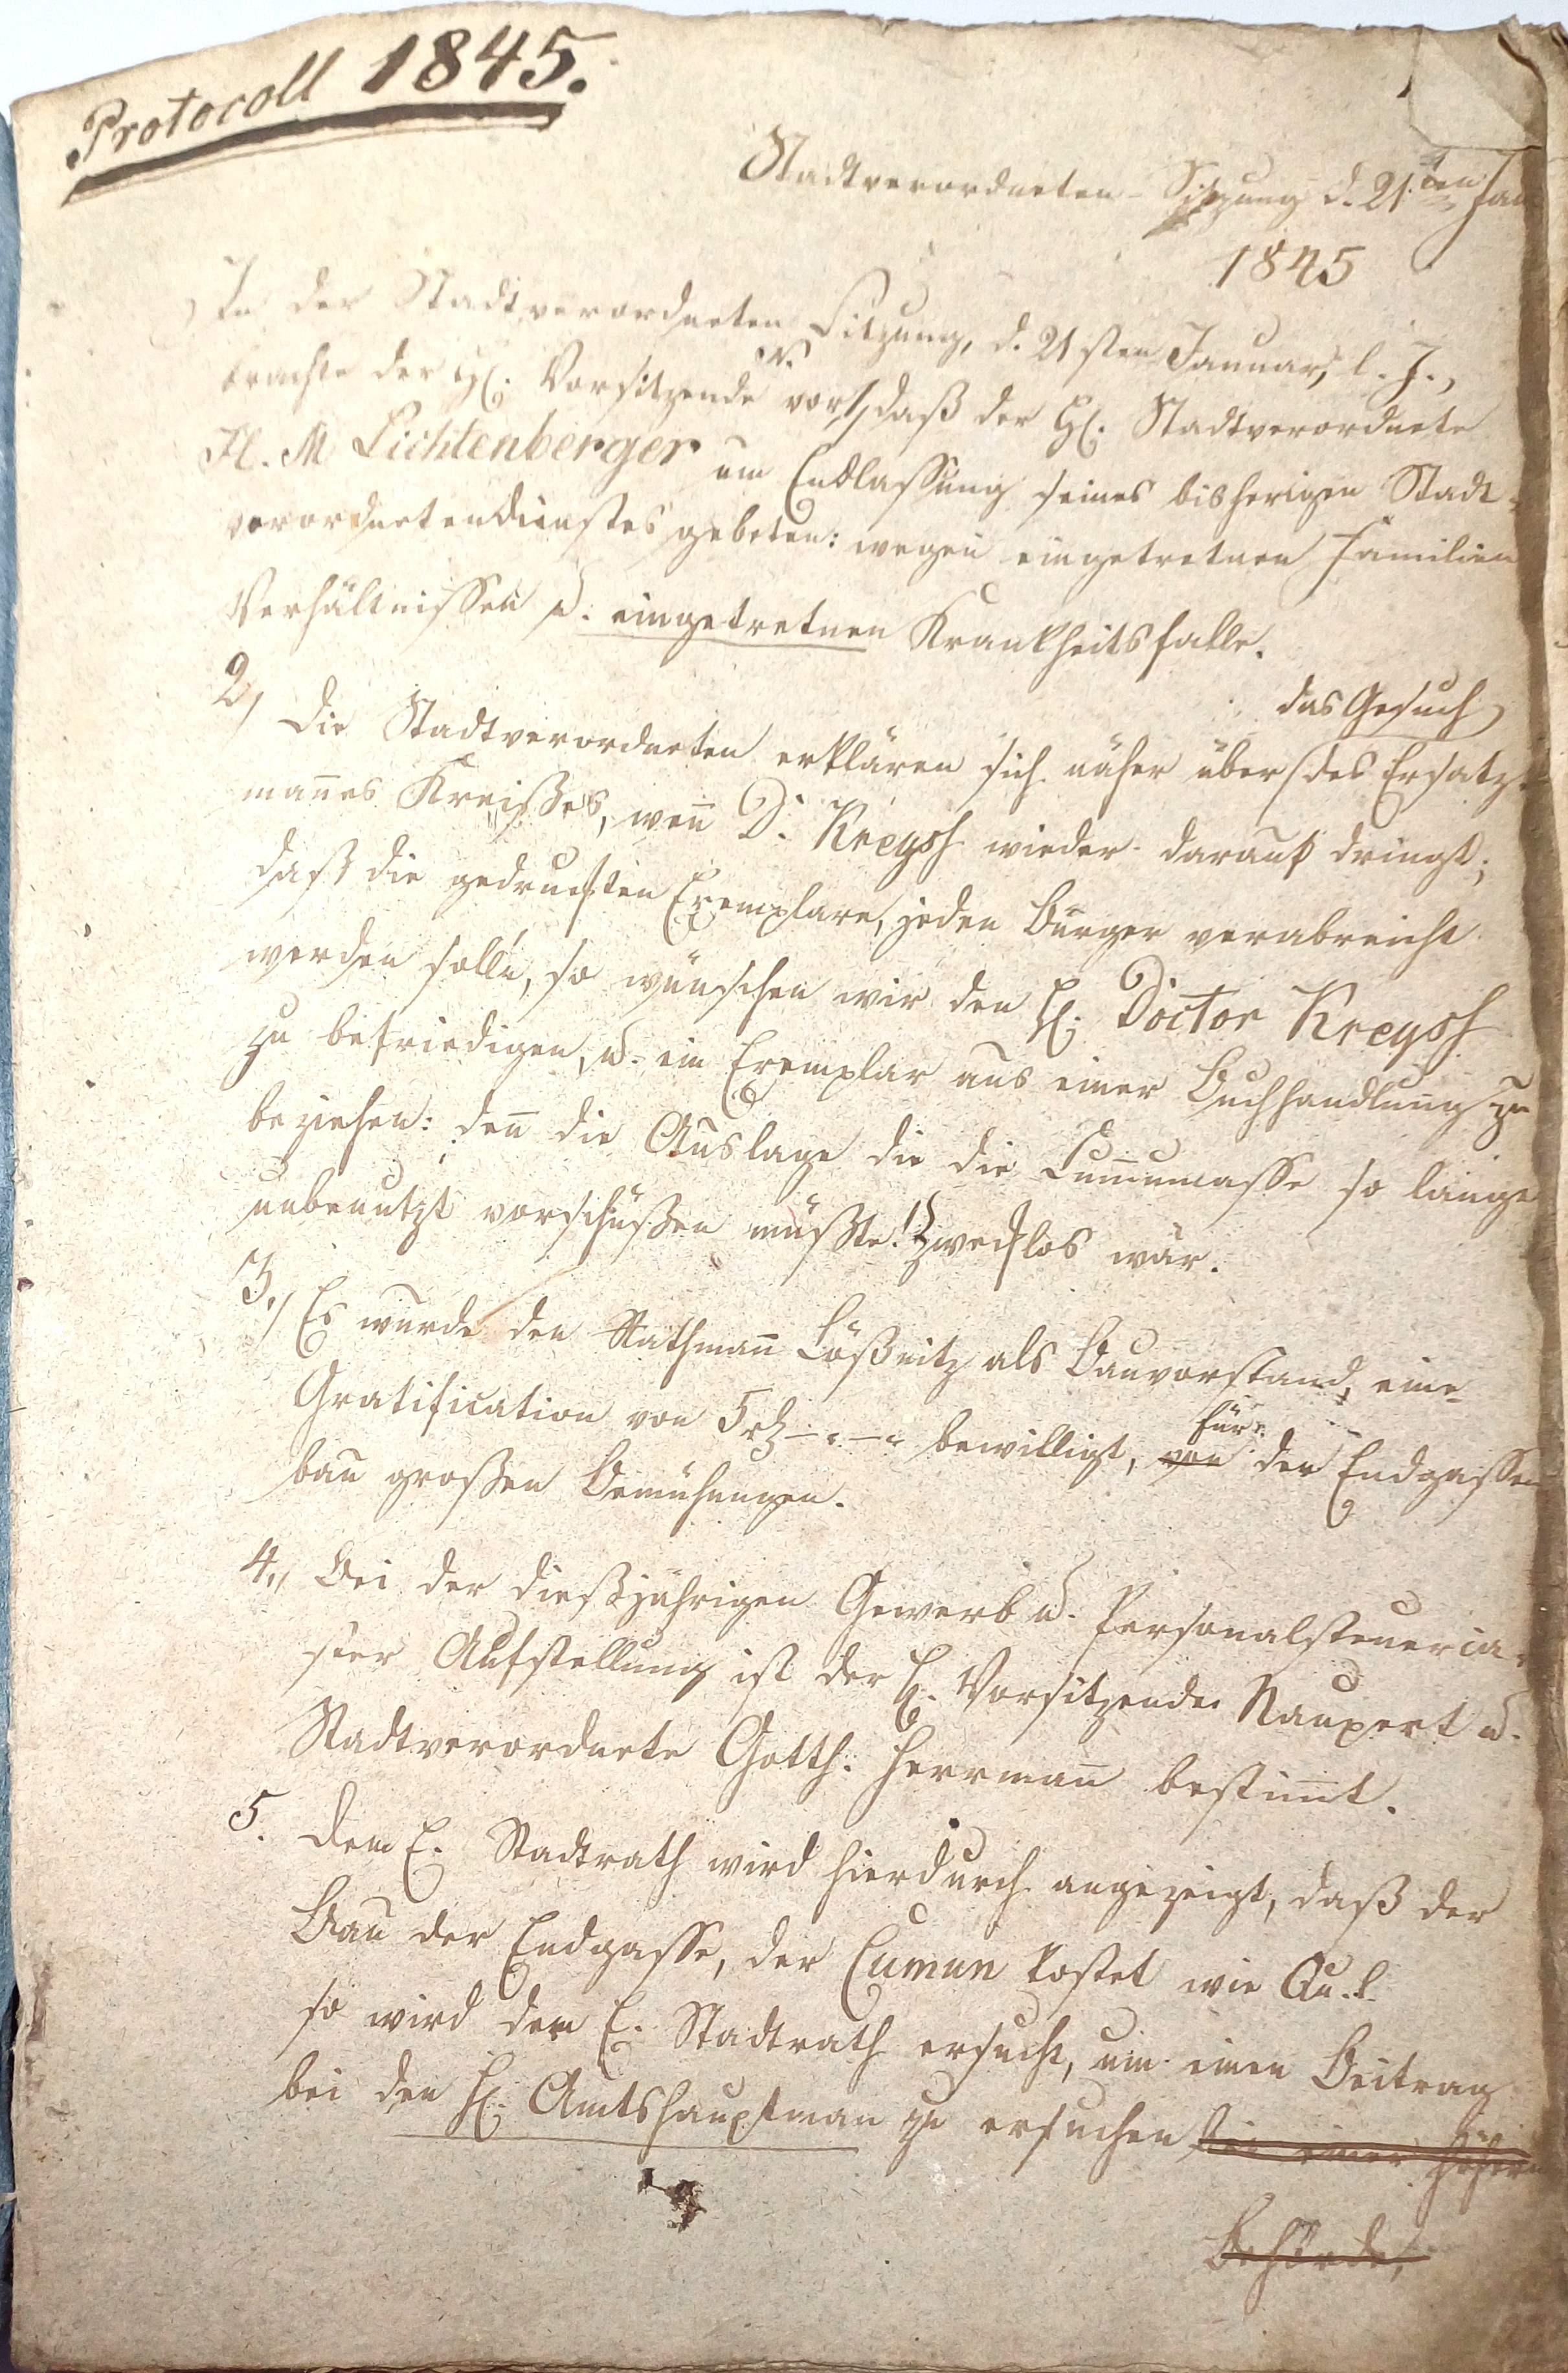 Protocoll 1845.
Stadtverordneten-Sitzung d. 21ten Jan
1845
In der Stadtverordneten Sitzung, d. 21sten Januar, l. J.,
brachte der H. Vorsitzende vor, daß der H. Stadtverordnete
M Lichtenberger um Endlassung seines bisherigen Stadt-
verordnetendienstes gebeten: wegen eingetretnen Familien
Verhältnissen u. eingetretnen Krankheitsfalle.
das Gesuch
2, Die Stadtverordneten erklären sich näher über des Ersatz-
mannes Kreißes, wen̄ D. Kreyssh wieder darauf dringt;
daß die gedruckten Exemplare, jeden Bürger verabreicht
werden solln, so wünschen wir den H. Doctor Kreyssh
zu befriedigen, u. ein Exemplar aus einer Buchhandlung zu
beziehen: den̄ die Auslage die die so lange
unbenutzt vorschüßen müßte! zwecklos wär.
3./ Es wurde den Rathman̄ Lößnitz als Bauvorstand, eine
Gratification von 5 rℓ -„-„ bewilligt, von für den Endgassen
bau großen Bemühungen.
4./ Bei der dießjährigen Gewerb u. Personalsteuerca-
ster Aufstellung ist der H. Vorsitzende Naupert u.
Stadtverordnete Gotth. Herrman̄ bestim̄t.
5. Dem E. Stadtrath wird hierdurch angezeigt, daß der
Bau der Endgasse, der Cumun kostet wie
so wird dem E. Stadtrath ersucht, um einen Beitrag
bei den H. Amtshauptman zu ersuchen bei einer höhern
Behörde,